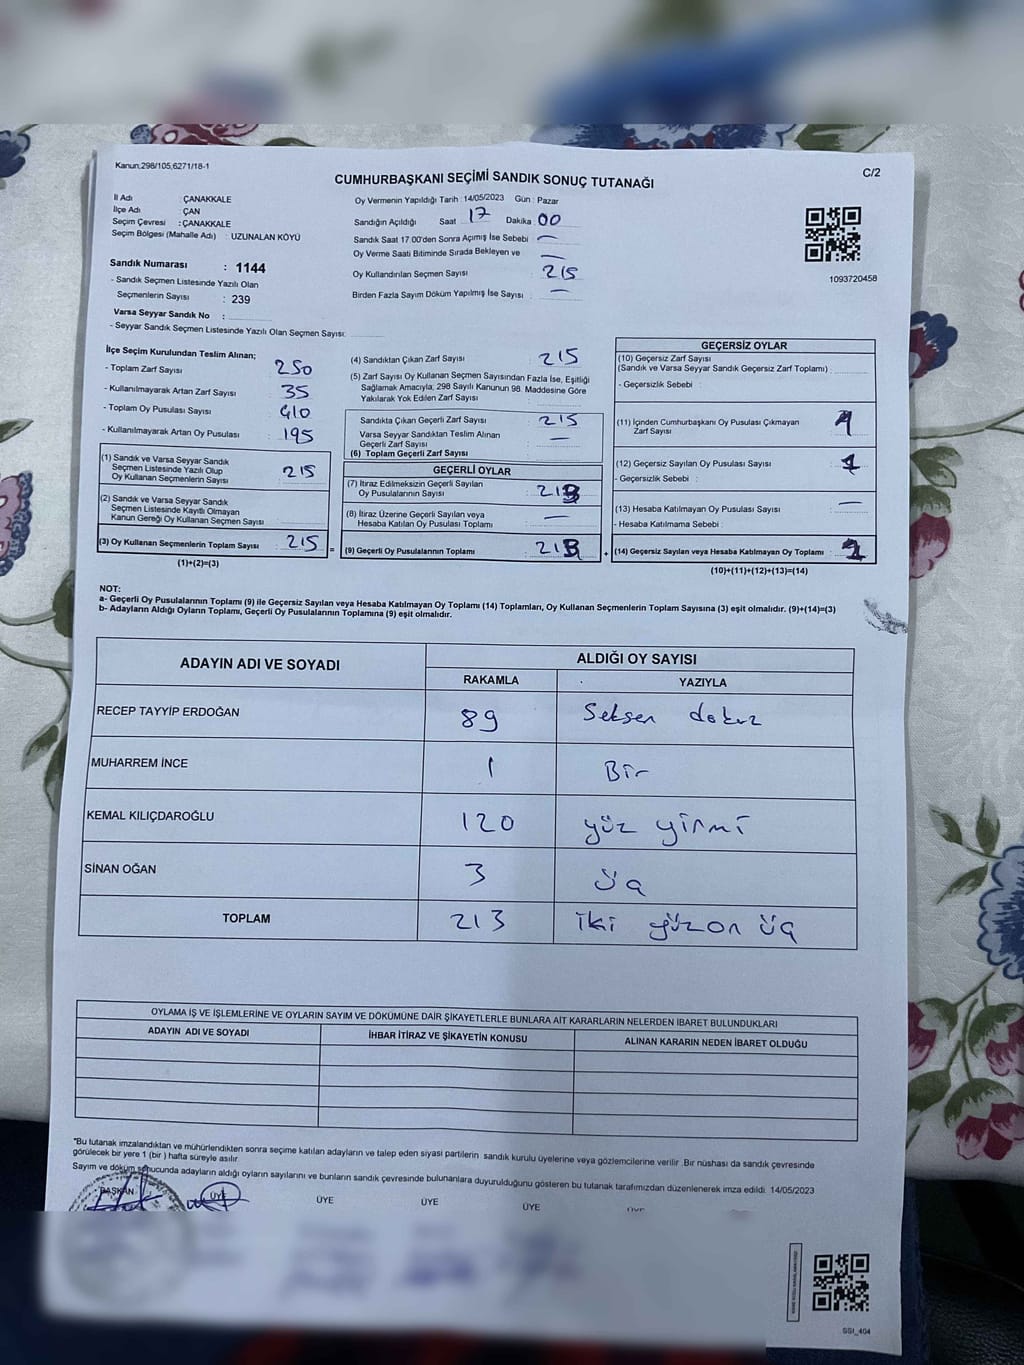 Kanun;298/105,6271/18-1
C/2
CUMHURBAŞKANI SEÇİMİ SANDIK SONUÇ TUTANAĞI
İl Adı : ÇANAKKALE
İlçe Adı : ÇAN
Seçim Çevresi : ÇANAKKALE
Seçim Bölgesi (Mahalle Adı) : UZUNALAN KÖYÜ
Sandık Numarası : 1144
- Sandık Seçmen Listesinde Yazılı Olan
Seçmenlerin Sayısı : 239
Varsa Seyyar Sandık No :
- Seyyar Sandık Seçmen Listesinde Yazılı Olan Seçmen Sayısı:
Oy Vermenin Yapıldığı Tarih : 14/05/2023 Gün : Pazar
Sandığın Açıldığı Saat 17 Dakika 00
Sandık Saat 17.00'den Sonra Açımış İse Sebebi —
Oy Verme Saati Bitiminde Sırada Bekleyen ve —
Oy Kullandırılan Seçmen Sayısı 215
Birden Fazla Sayım Döküm Yapılmış İse Sayısı : —
1093720458
İlçe Seçim Kurulundan Teslim Alınan;
- Toplam Zarf Sayısı : 250
- Kullanılmayarak Artan Zarf Sayısı : 35
- Toplam Oy Pusulası Sayısı : 410
- Kullanılmayarak Artan Oy Pusulası : 195
(1) Sandık ve Varsa Seyyar Sandık
Seçmen Listesinde Yazılı Olup
Oy Kullanan Seçmenlerin Sayısı : 215
(2) Sandık ve Varsa Seyyar Sandık
Seçmen Listesinde Kayıtlı Olmayan
Kanun Gereği Oy Kullanan Seçmen Sayısı :
(3) Oy Kullanan Seçmenlerin Toplam Sayısı : 215
(1)+(2)=(3)
(4) Sandıktan Çıkan Zarf Sayısı : 215
(5) Zarf Sayısı Oy Kullanan Seçmen Sayısından Fazla İse, Eşitliği
Sağlamak Amacıyla; 298 Sayılı Kanunun 98. Maddesine Göre
Yakılarak Yok Edilen Zarf Sayısı :
Sandıkta Çıkan Geçerli Zarf Sayısı : 215
Varsa Seyyar Sandıktan Teslim Alınan
Geçerli Zarf Sayısı : —
(6) Toplam Geçerli Zarf Sayısı
GEÇERLİ OYLAR
(7) İtiraz Edilmeksizin Geçerli Sayılan
Oy Pusulalarının Sayısı : 213
(8) İtiraz Üzerine Geçerli Sayılan veya
Hesaba Katılan Oy Pusulası Toplamı : —
= (9) Geçerli Oy Pusulalarının Toplamı : 213 +
GEÇERSİZ OYLAR
(10) Geçersiz Zarf Sayısı
(Sandık ve Varsa Seyyar Sandık Geçersiz Zarf Toplamı) :
- Geçersizlik Sebebi :
(11) İçinden Cumhurbaşkanı Oy Pusulası Çıkmayan
Zarf Sayısı :
(12) Geçersiz Sayılan Oy Pusulası Sayısı :
- Geçersizlik Sebebi :
(13) Hesaba Katılmayan Oy Pusulası Sayısı : —
- Hesaba Katılmama Sebebi :
(14) Geçersiz Sayılan veya Hesaba Katılmayan Oy Toplamı :
(10)+(11)+(12)+(13)=(14)
NOT:
a- Geçerli Oy Pusulalarının Toplamı (9) ile Geçersiz Sayılan veya Hesaba Katılmayan Oy Toplamı (14) Toplamları, Oy Kullanan Seçmenlerin Toplam Sayısına (3) eşit olmalıdır. (9)+(14)=(3)
b- Adayların Aldığı Oyların Toplamı, Geçerli Oy Pusulalarının Toplamına (9) eşit olmalıdır.
ADAYIN ADI VE SOYADI ALDIĞI OY SAYISI
RAKAMLA YAZIYLA
RECEP TAYYİP ERDOĞAN 89 Seksen dokuz
MUHARREM İNCE 1 Bir
KEMAL KILIÇDAROĞLU 120 yüz yirmi
SİNAN OĞAN 3 üç
TOPLAM 213 iki yüzon üç
OYLAMA İŞ VE İŞLEMLERİNE VE OYLARIN SAYIM VE DÖKÜMÜNE DAİR ŞİKAYETLERLE BUNLARA AİT KARARLARIN NELERDEN İBARET BULUNDUKLARI
ADAYIN ADI VE SOYADI İHBAR İTİRAZ VE ŞİKAYETİN KONUSU ALINAN KARARIN NEDEN İBARET OLDUĞU
*Bu tutanak imzalandıktan ve mühürlendikten sonra seçime katılan adayların ve talep eden siyasi partilerin sandık kurulu üyelerine veya gözlemcilerine verilir .Bir nüshası da sandık çevresinde
görülecek bir yere 1 (bir ) hafta süreyle asılır.
Sayım ve döküm sonucunda adayların aldığı oyların sayılarını ve bunların sandık çevresinde bulunanlara duyurulduğunu gösteren bu tutanak tarafımızdan düzenlenerek imza edildi. 14/05/2023
BAŞKAN ÜYE ÜYE ÜYE ÜYE ÜYE
SSI_404